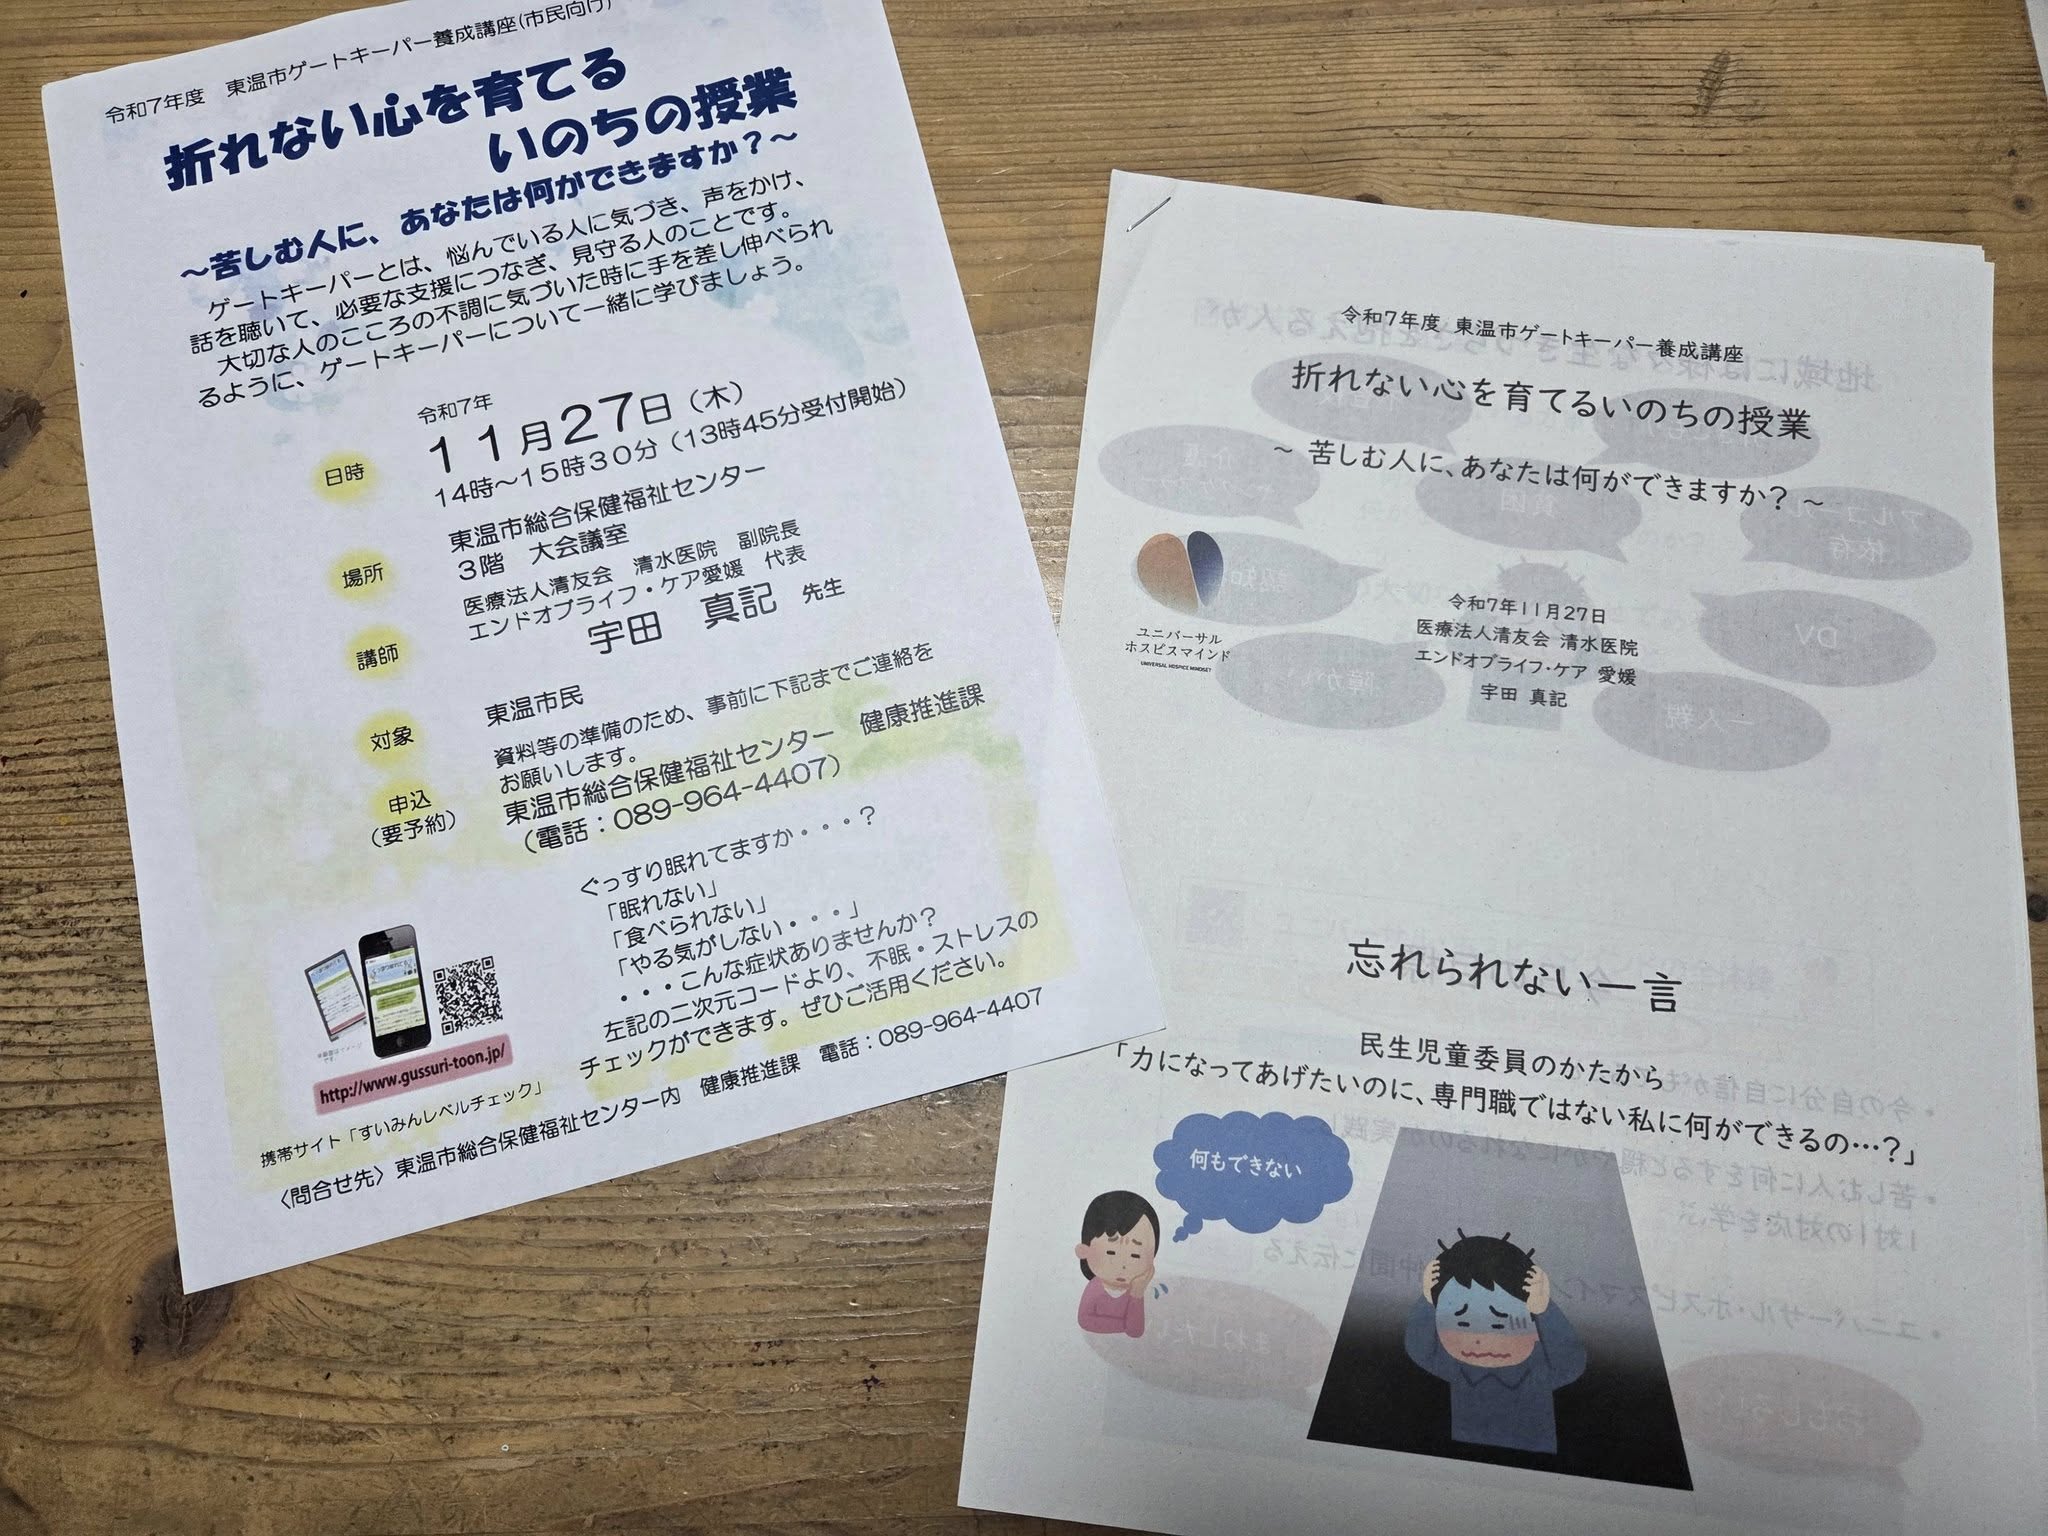 令和7年度　東温市ゲートキーパー養成講座(市民向け)
折れない心を育てる
いのちの授業
～苦しむ人に、あなたは何ができますか？～
ゲートキーパーとは、悩んでいる人に気づき、声をかけ、
話を聴いて、必要な支援につなぎ、見守る人のことです。
大切な人のこころの不調に気づいた時に手を差し伸べられ
るように、ゲートキーパーについて一緒に学びましょう。
日時
令和7年
１１月２７日（木）
14時～15時３０分（13時45分受付開始）
場所
東温市総合保健福祉センター
３階　大会議室
講師
医療法人清友会　清水医院　副院長
エンドオブライフ・ケア愛媛　代表
宇田　真記　先生
対象
東温市民
申込
（要予約）
資料等の準備のため、事前に下記までご連絡を
お願いします。
東温市総合保健福祉センター　健康推進課
（電話：089-964-4407）
ぐっすり眠れてますか・・・？
「眠れない」
「食べられない」
「やる気がしない・・・」
・・・こんな症状ありませんか？
左記の二次元コードより、不眠・ストレスの
チェックができます。ぜひご活用ください。
http://www.gussuri-toon.jp/
携帯サイト「すいみんレベルチェック」
〈問合せ先〉東温市総合保健福祉センター内　健康推進課　電話：089-964-4407
令和7年度 東温市ゲートキーパー養成講座
折れない心を育てるいのちの授業
～ 苦しむ人に、あなたは何ができますか？ ～
ユニバーサル
ホスピスマインド
UNIVERSAL HOSPICE MINDSET
令和7年11月27日
医療法人清友会 清水医院
エンドオブライフ・ケア 愛媛
宇田 真記
忘れられない一言
民生児童委員のかたから
「力になってあげたいのに、専門職ではない私に何ができるの…？」
何もできない